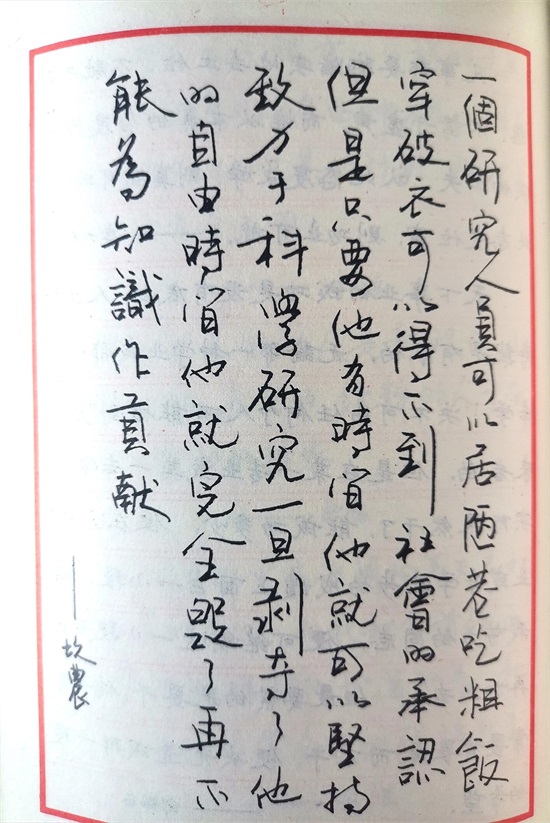 一個研究人員可以居陋巷吃粗飯
穿破衣可以得不到社會的承認
但是只要他有時間他就可以堅持
致力于科學研究一旦剥夺了他
的自由時間他就完全毁了再不
能為知識作貢献
——坎農